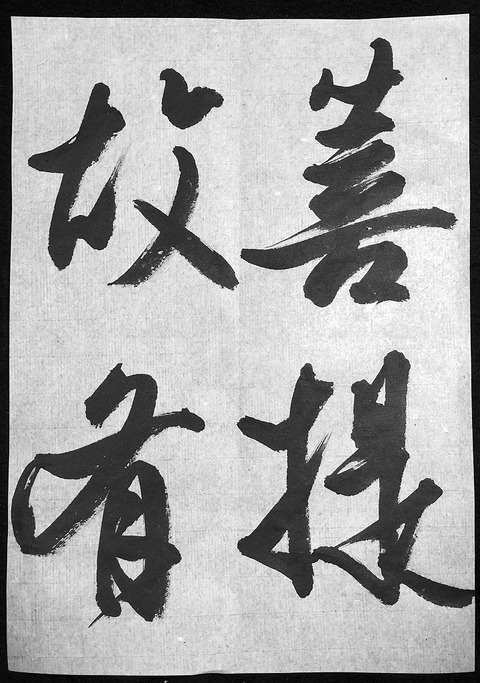 菩提
故有